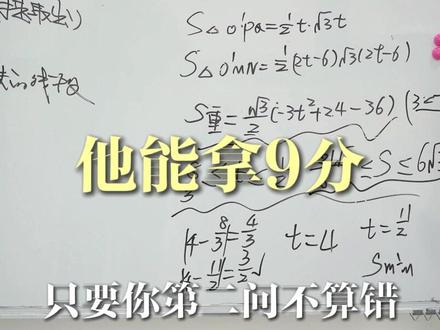 S△O'PQ=½t·√3t
S△O'MN=½(2t-6)√3(2t-6)
S重=√3/2(-3t²+24-36) (3≤
他能拿9分
≤S≤6√3
|4-8/3|=4/3 t=4 t=11/2
|4-11/2|=3/2√
Smin
只要你第二问不算错